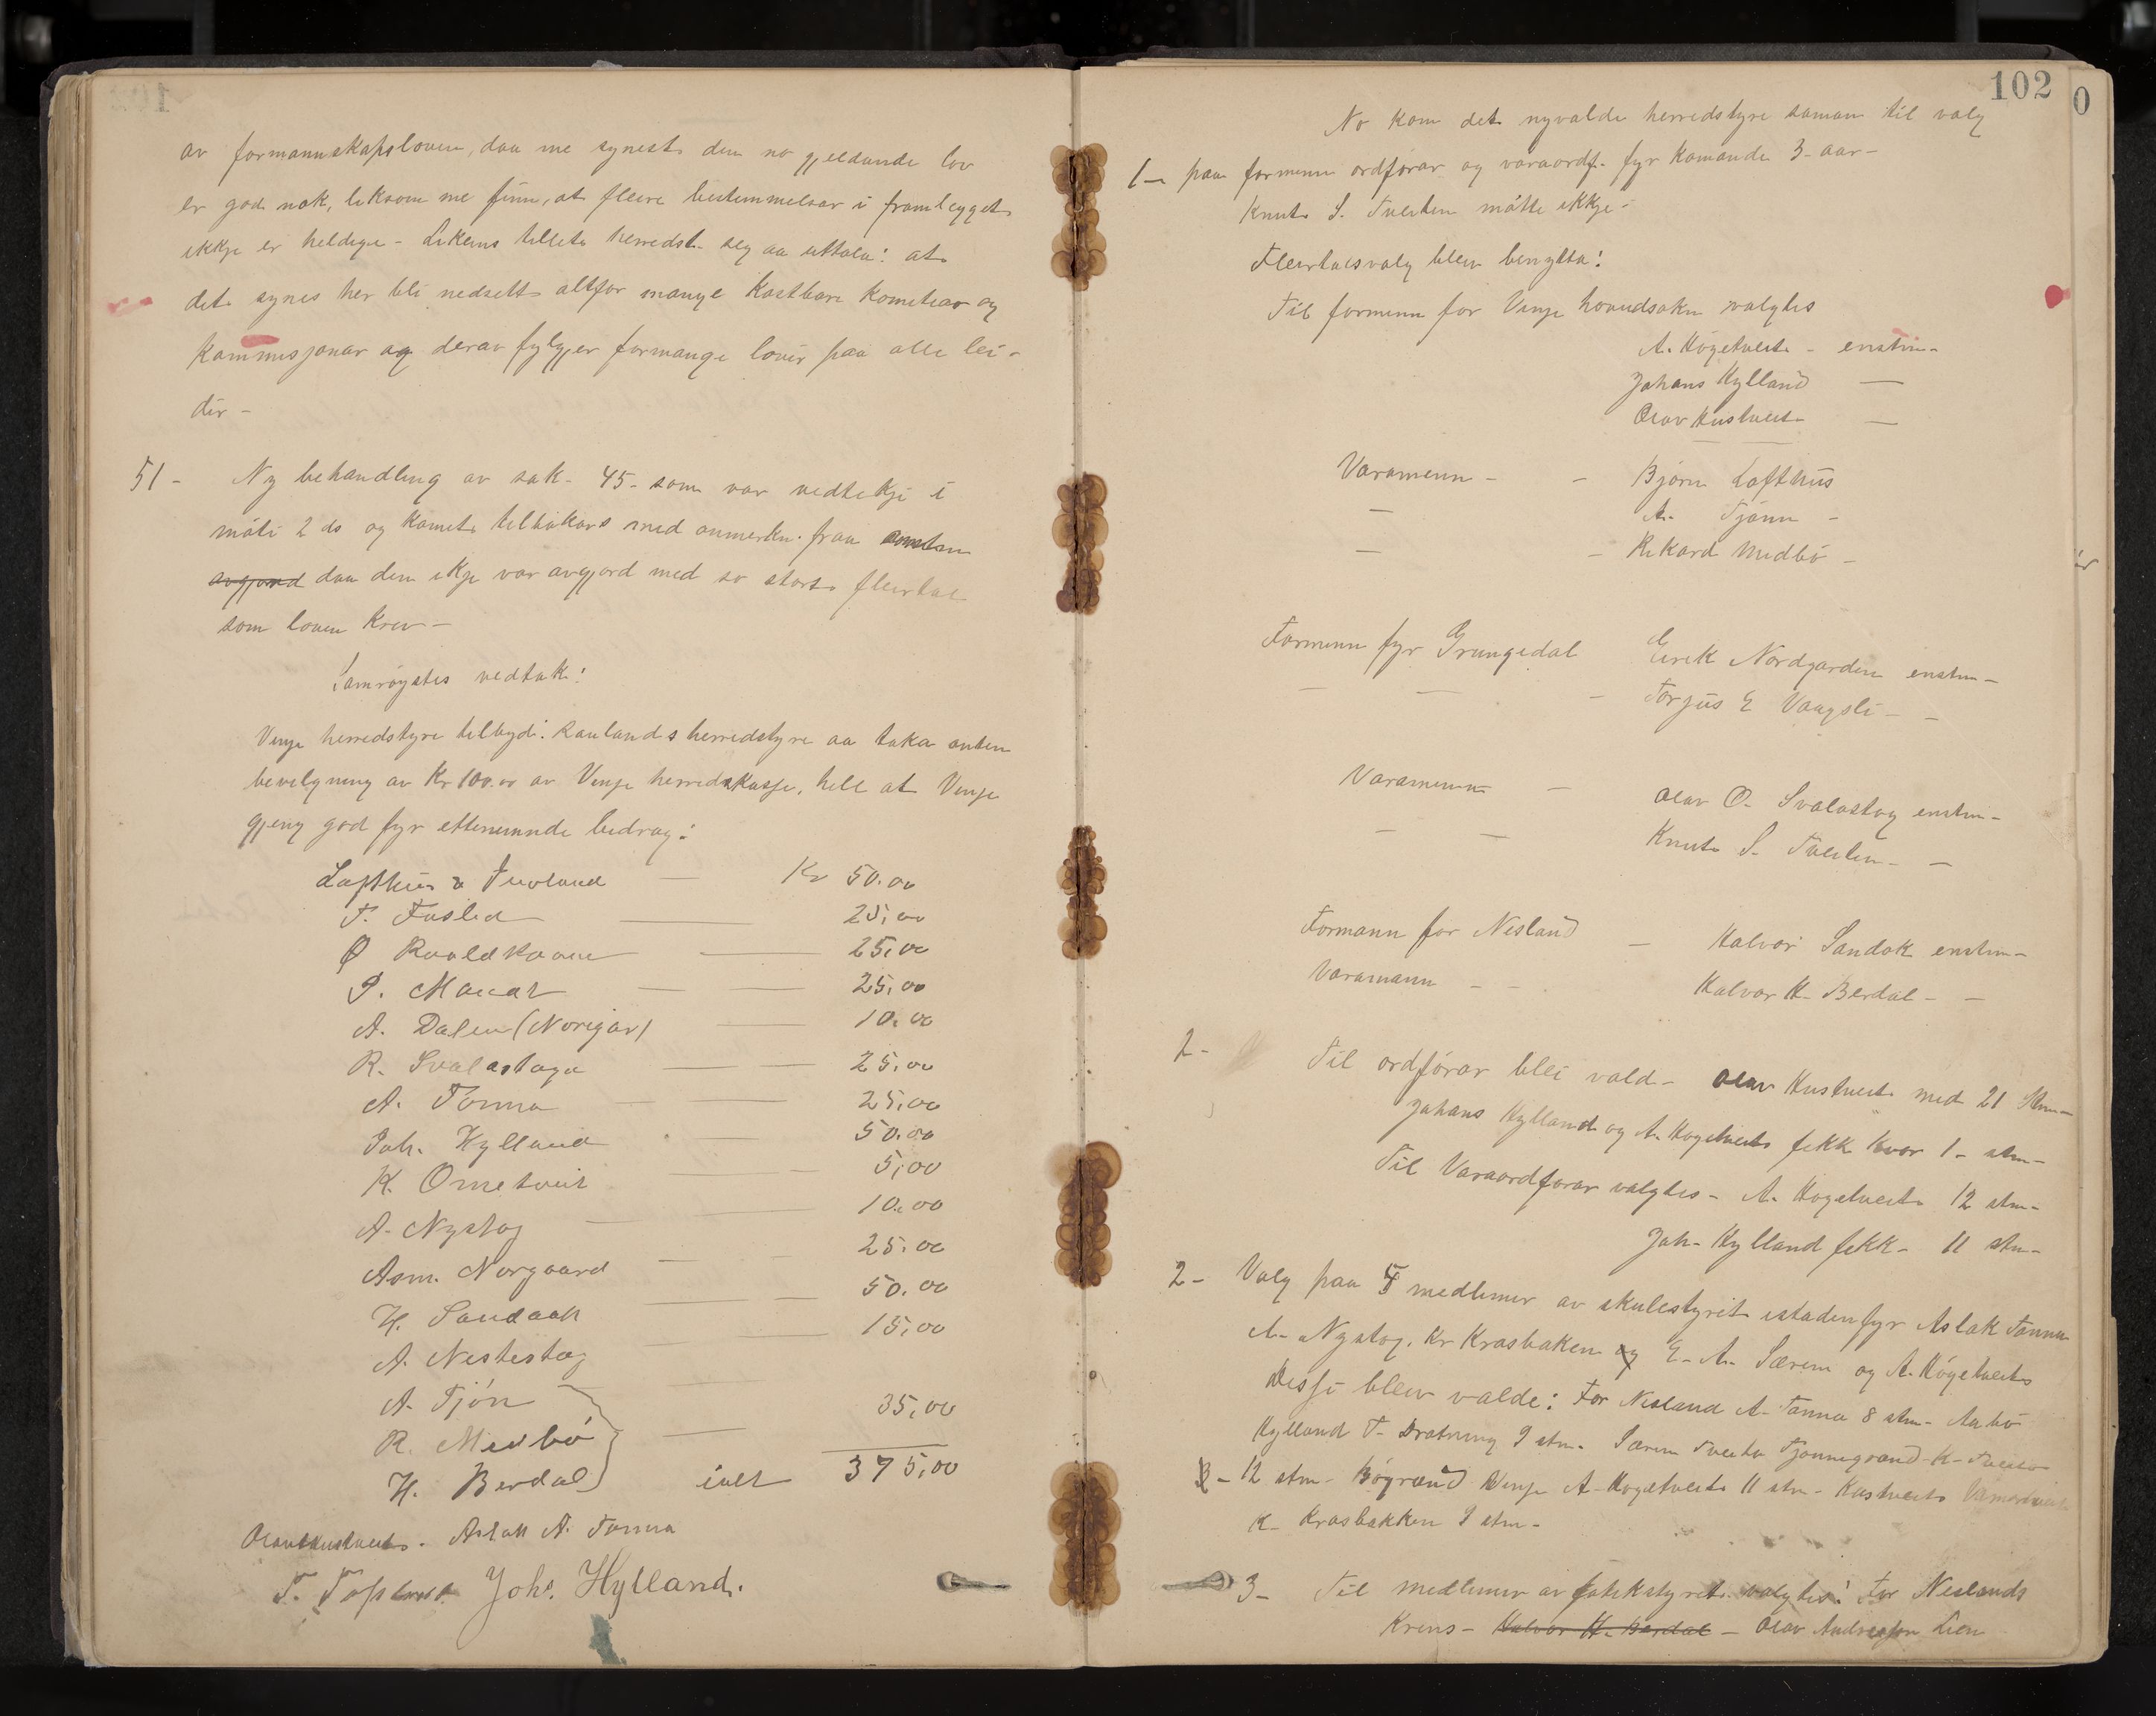 av formannskapsloven, daa me synest den no gjeldande lov
er god nok, liksom me finn, at fleire bestemmelsar i framlegget
ikkje er heldige - Likeins tillet herredst. seg aa uttala: at
det synes her bli nedsett altfor mange kostbare komitear og
kommisjonar og derav fylgjer formange lovir paa alle lei-
dir -
51 - Ny behandling av sak - 45 - som var vedtikji i
móti 2 ds og komet tilbakars med anmerkn. fraa amtm
avgjord daa den ikje var avgjord med so stort fleirtal
som loven krev -
Samróystes vedtak:
Vinje herredstyre tilbyd: Raulands herredstyre aa taka anten
bevilgning av Kr 100.00 av Vinje herredskasse, hell at Vinje
gjeng god fyr ettenemnde bedrag:
Lofthus & Juvland — Kr 50.00
T. Fosled — 25,00
O Roaldkvam — 25,00
S. — 25,00
A. Dalen (Norigar) — 10.00
R. Svalastoga — 25.00
A. Tonna — 25,00
Joh. Hylland — 50.00
K. Ornetveit — 5,00
A. Nystog — 10.00
Asm. Norgaard — 25.00
H. Sandaak — 50.00
A. Nestestog — 15,00
A. Tjón
R. Medbó — 35,00
H. Berdal
ialt 375,00
Olav Kustveit. Aslak A. Tonna
T. Joh. Hylland.
102
0
No kom det nyvalde herredstyre saman til valg
1 - paa formenn ordfórar og varaordf. fyr komande 3-aar -
Knut S. Tveiten mótte ikkje -
Fleirtalsvalg blev benytta:
Til formenn for Vinje hovudsokn valgtes
A. Kógetveit - enstm -
Johans Hylland —
Olav Kustveit —
Varamenn - - Bjórn Lofthus
— A. Tjónn -
— - Rikard Medbó -
Formenn fyr Grungedal Eirik Nordgarden enstm -
— — - Torjus E Vaagsli - -
Varamenn — Olav O. Svalastog enstm -
— — Knut S. Tveiten - —
Formann for Nesland — Halvor Sandok enstm -
Varamann - - Halvor H. Berdal - —
2 - Til ordfórar blei vald - Olav Kustveit med 21 stm -
Johans Hylland og A. Kogetveit fekk kvar 1 - stm -
Til Varaordforar valgtes - A. Kogetveit 12 stm -
Joh. Hylland fekk - 11 stm -
2 - Valg paa 5 medlemer av skulestyret istadenfyr Aslak Tonna
A. Nystog, Kr Krosbaken og E. A. Særen og A. Kógetveit
Dessi blev valde: For Nesland A. Tonna 8 stm - Aabó
Hylland T. Dratning 9 stm - Særen Tveito Tjonnegrend K. Tveito
3 - 12 stm - Bógrend Vinje A. Kogetveit 11 stm - Kustveit
K. Krosbakken 9 stm -
3 - Til medlemer av fatikstyret valgtes: For Neslands
Krins - Halvor H. Berdal - Olav Andressen Lien